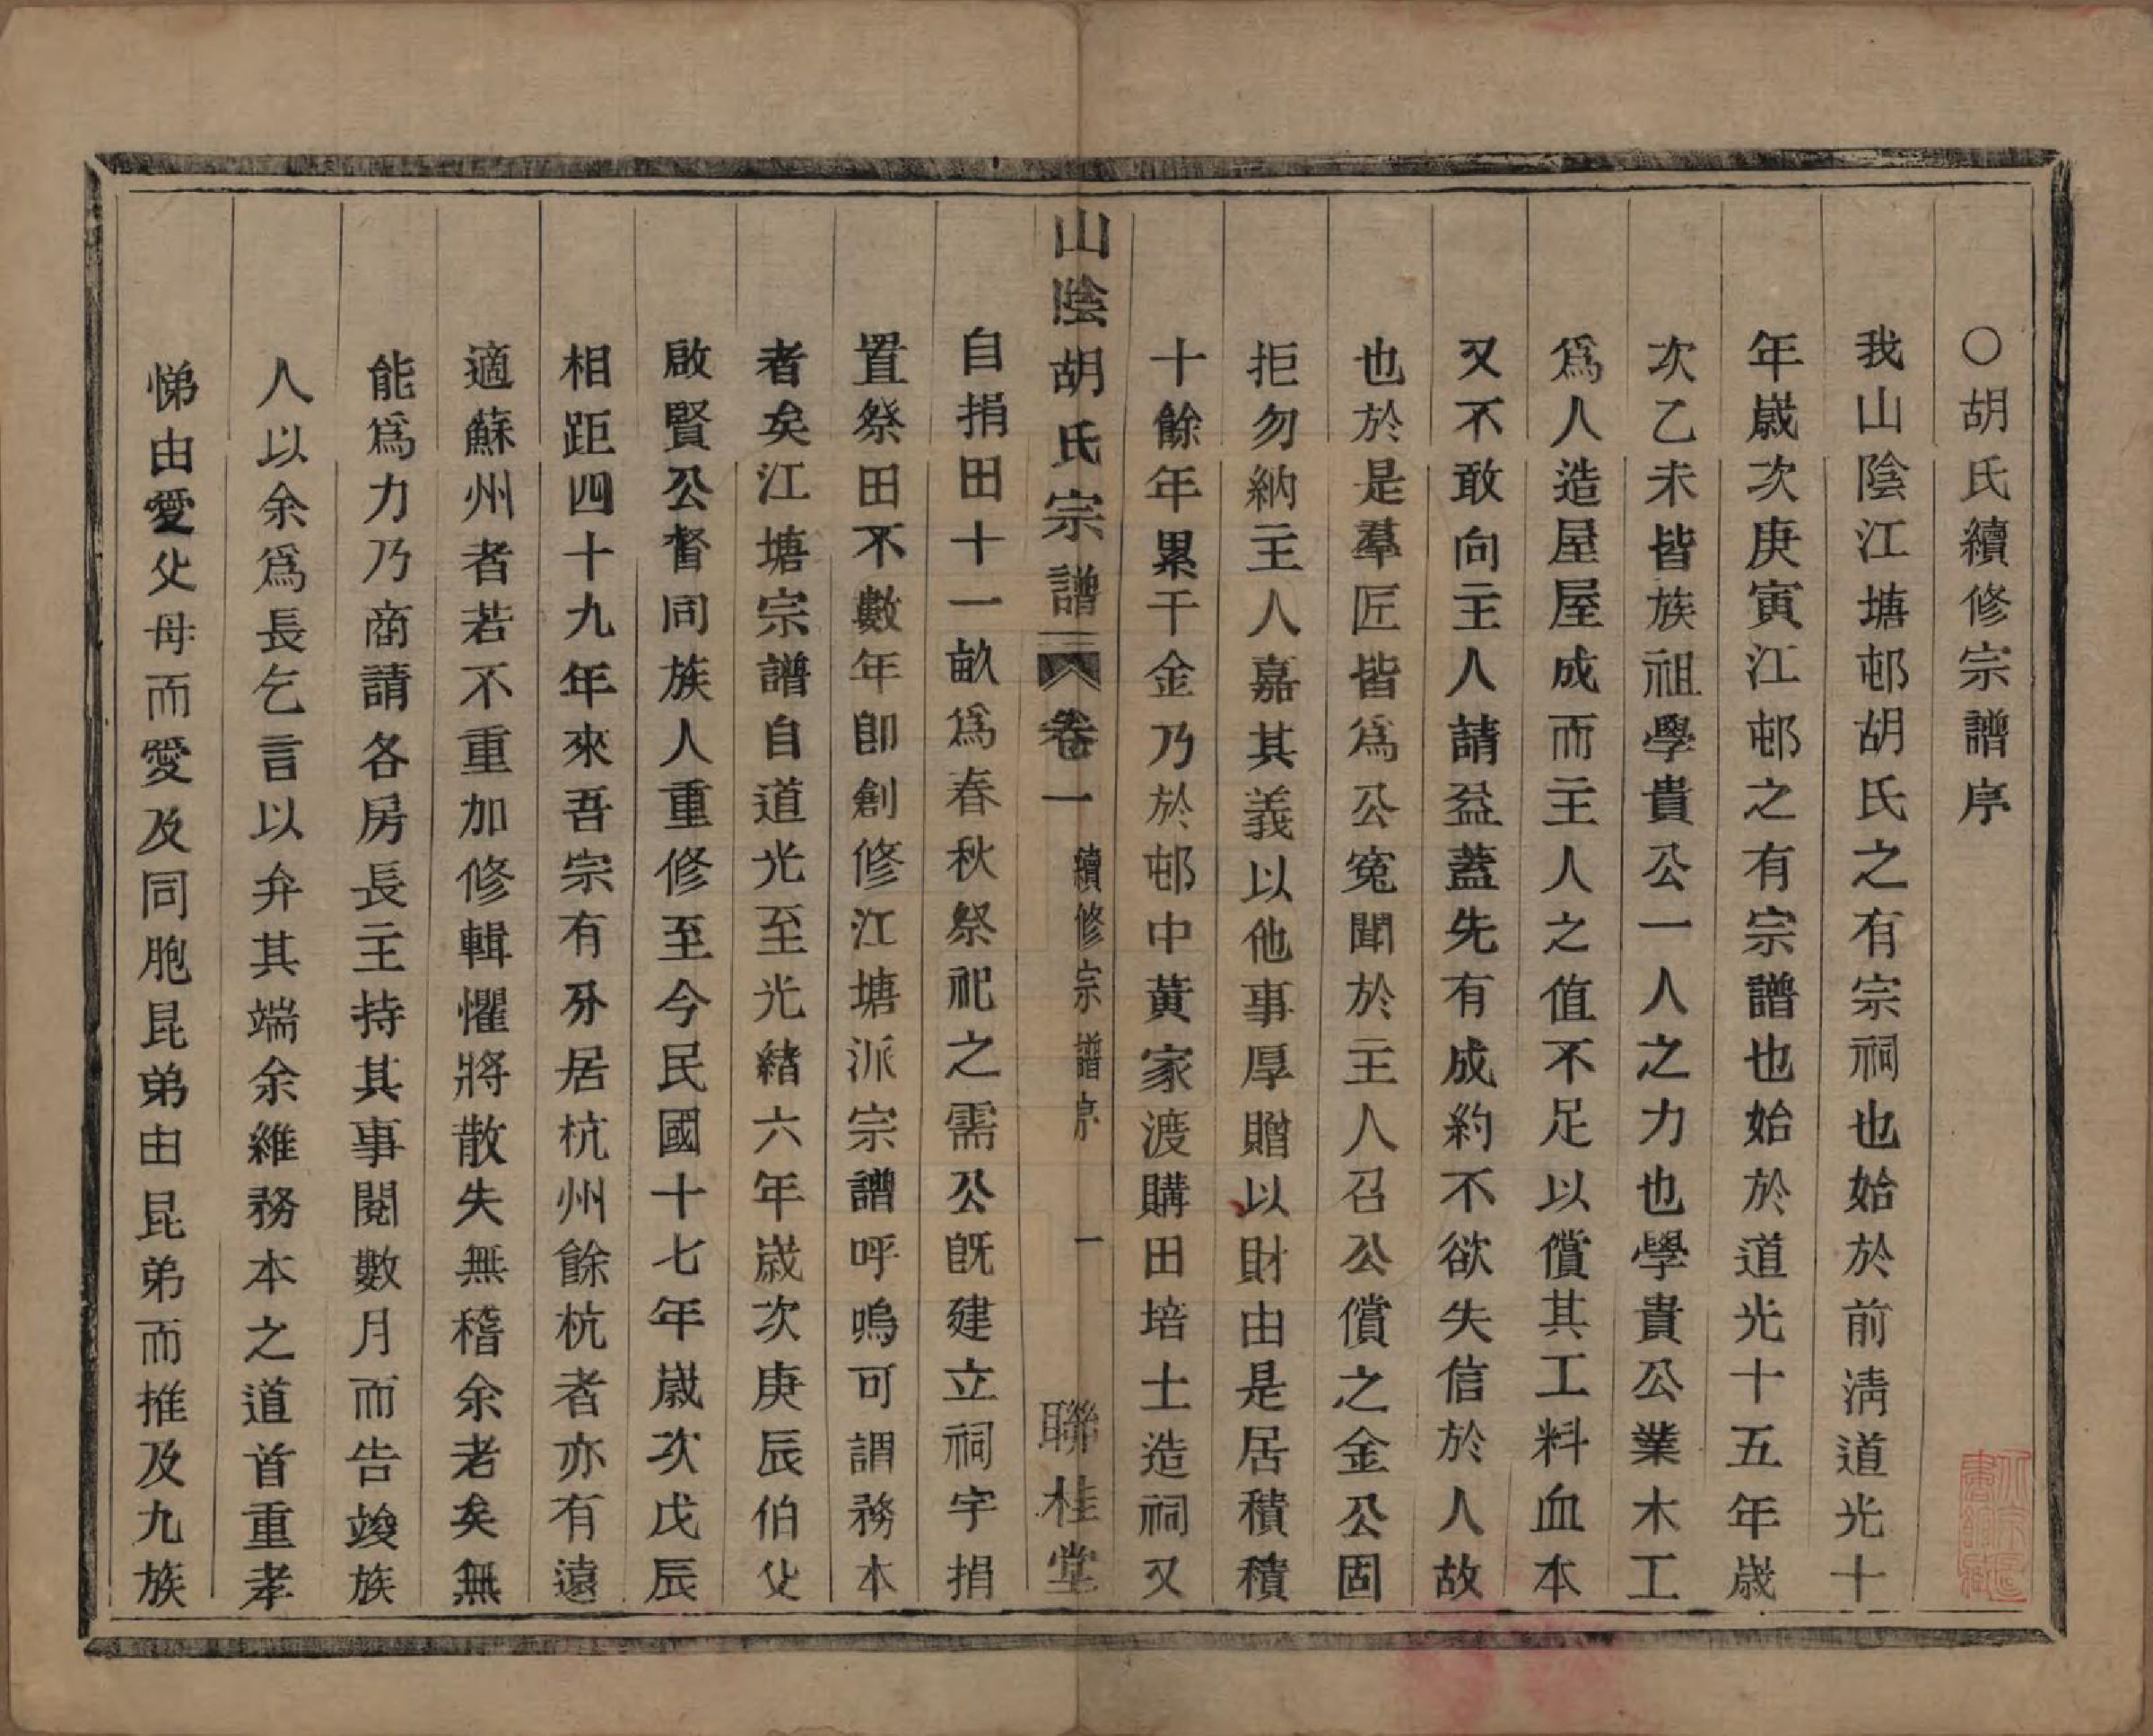 〇胡氏續修宗譜序
我山陰江塘邨胡氏之有宗祠也始於前淸道光十
年歲次庚寅江邨之有宗譜也始於道光十五年歲
次乙未皆族祖學貴公一人之力也學貴公業木工
爲人造屋屋成而主人之值不足以償其工料血本
又不敢向主人請益蓋先有成約不欲失信於人故
也於是羣匠皆爲公寃聞於主人召公償之金公固
拒勿納主人嘉其義以他事厚贈以財由是居積積
十餘年累千金乃於邨中黃家渡購田培土造祠又
山陰胡氏宗譜 卷一 續修宗譜序 一 聯桂堂
自捐田十一畝爲春秋祭祀之需公旣建立祠宇捐
置祭田不數年卽創修江塘派宗譜呼嗚可謂務本
者矣江塘宗譜自道光至光緒六年歲次庚辰伯父
啟賢公督同族人重修至今民國十七年歲次戊辰
相距四十九年來吾宗有分居杭州餘杭者亦有遠
適蘇州者若不重加修輯懼將散失無稽余老矣無
能爲力乃商請各房長主持其事閱數月而告竣族
人以余爲長乞言以弁其端余維務本之道首重孝
悌由愛父母而愛及同胞昆弟由昆弟而推及九族